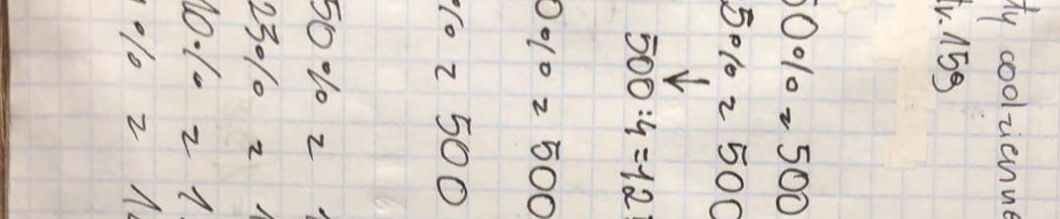 ty codzienne
tr. 159
50% z 500
5% z 500
↓
500:4=12
0% z 500
% z 500
50% z
25% z
10% z 1
% z 1